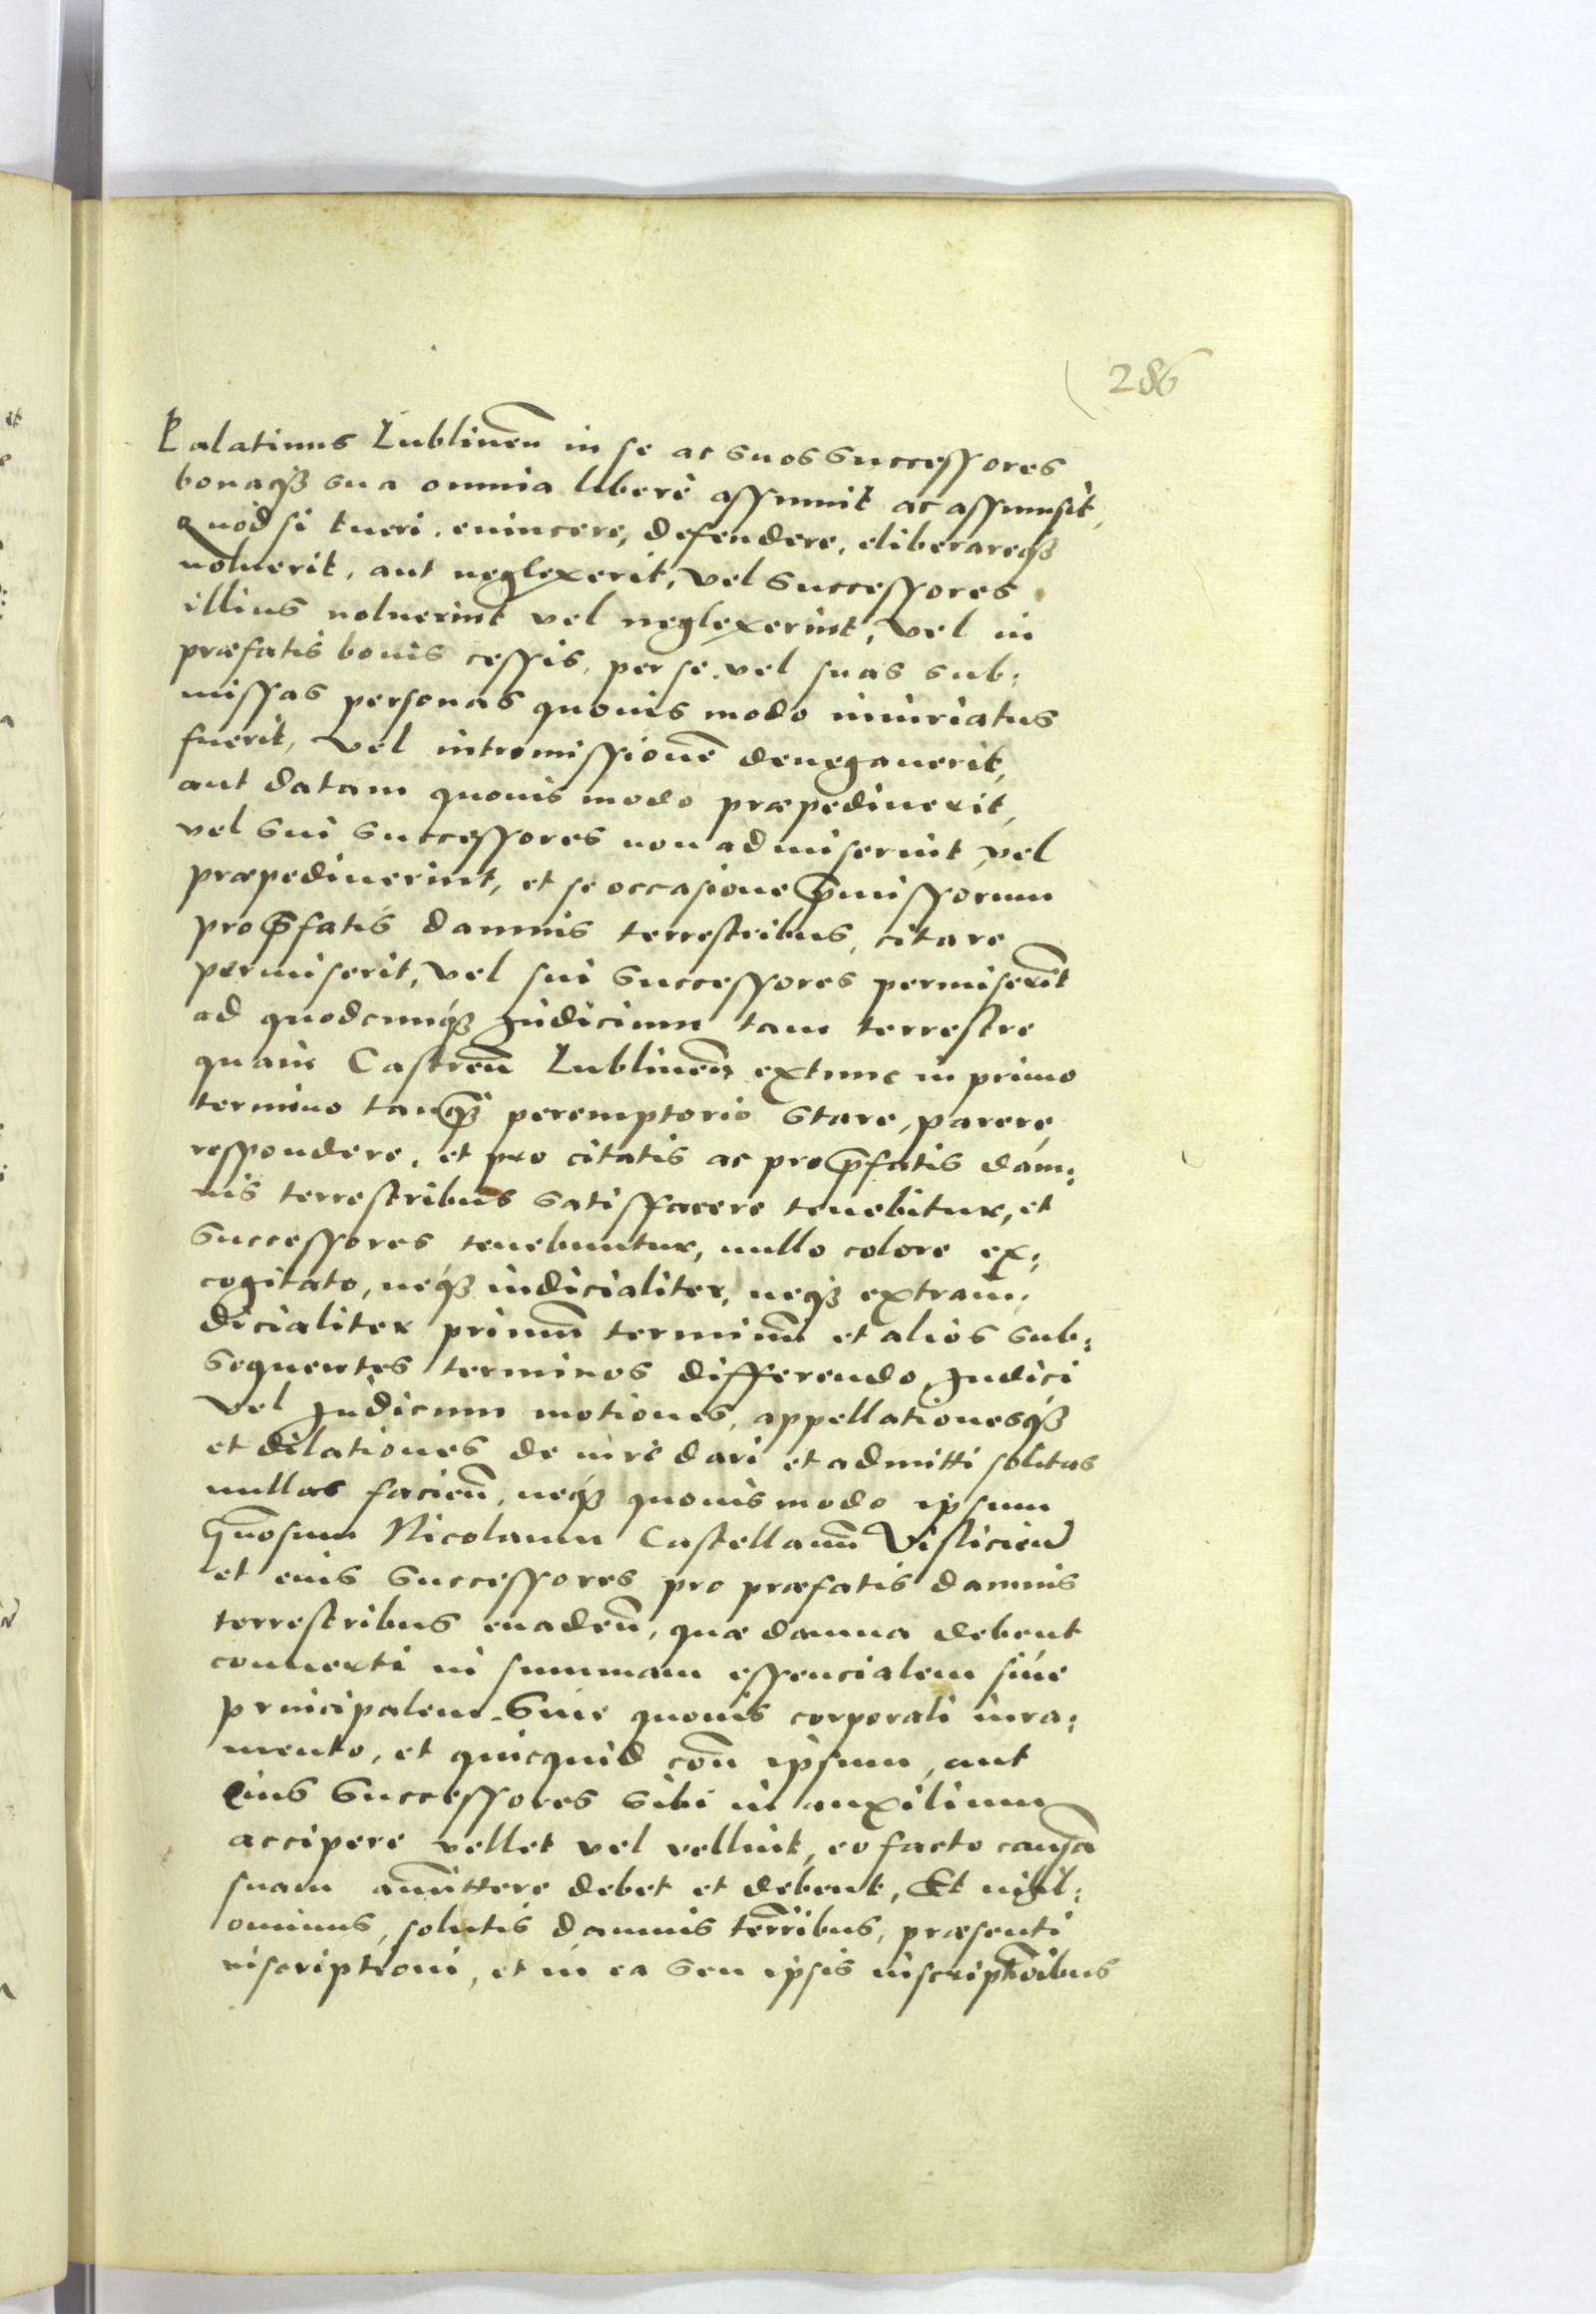 286
Palatinus Lublineñ in se ac suos successores
bonaqꝫ sua omnia liberè assumit ac assumsit,
Quòd si tueri, euincere, defendere, eliberareqꝫ
noluerit, aut neglexerit, vel successores
illius noluerint vel neglexerint, vel in
præfatis bonis cessis, per se vel suas sub:
missas personas quouis modo iniuriatus
fuerit, vel intromissionẽ denegauerit,
aut datam quouis modo præpediuerit,
vel sui successores non admiserint, vel
præpediuerint, et se occasione p̃missorum
pro p̃fatis damnis terrestribus, citare
permiserit, vel sui successores permiserĩt
ad quodcunqꝫ Iudicium tam terrestre
quàm Castreñ Lublineñ extunc in primo
termino tanq̃ peremptorio stare, parere,
respondere, et pro citatis ac pro p̃fatis dam:
nis terrestribus satisfacere tenebitur, et
successores tenebuntur, nullo colore ex:
cogitato, neqꝫ iudicialiter, neqꝫ extraiu:
dicialiter primũ terminũ et alios sub:
sequentes terminos differendo, Iudici
vel Iudicum motiones, appellationesqꝫ
et dilationes de iure dari et admitti solitas
nullas facieñ, neqꝫ quouis modo ipsum
Gñosum Nicolaum Castellanũ Visliciẽn
et euis successores pro præfatis damnis
terrestribus euadeñ, quæ damna debent
conuerti in summam essencialem siue
principalem. Sine quouis corporali iura:
mento, et quicquid coñ ipsum, aut
eius successores sibi in auxilium
accipere vellet vel vellint, eo facto causã
suam am̃ittere debet et debent, Et nihil:
ominus, solutis damnis ter̃ribus, præsenti
inscriptioni, et in ea seu ipsis inscriptõibus